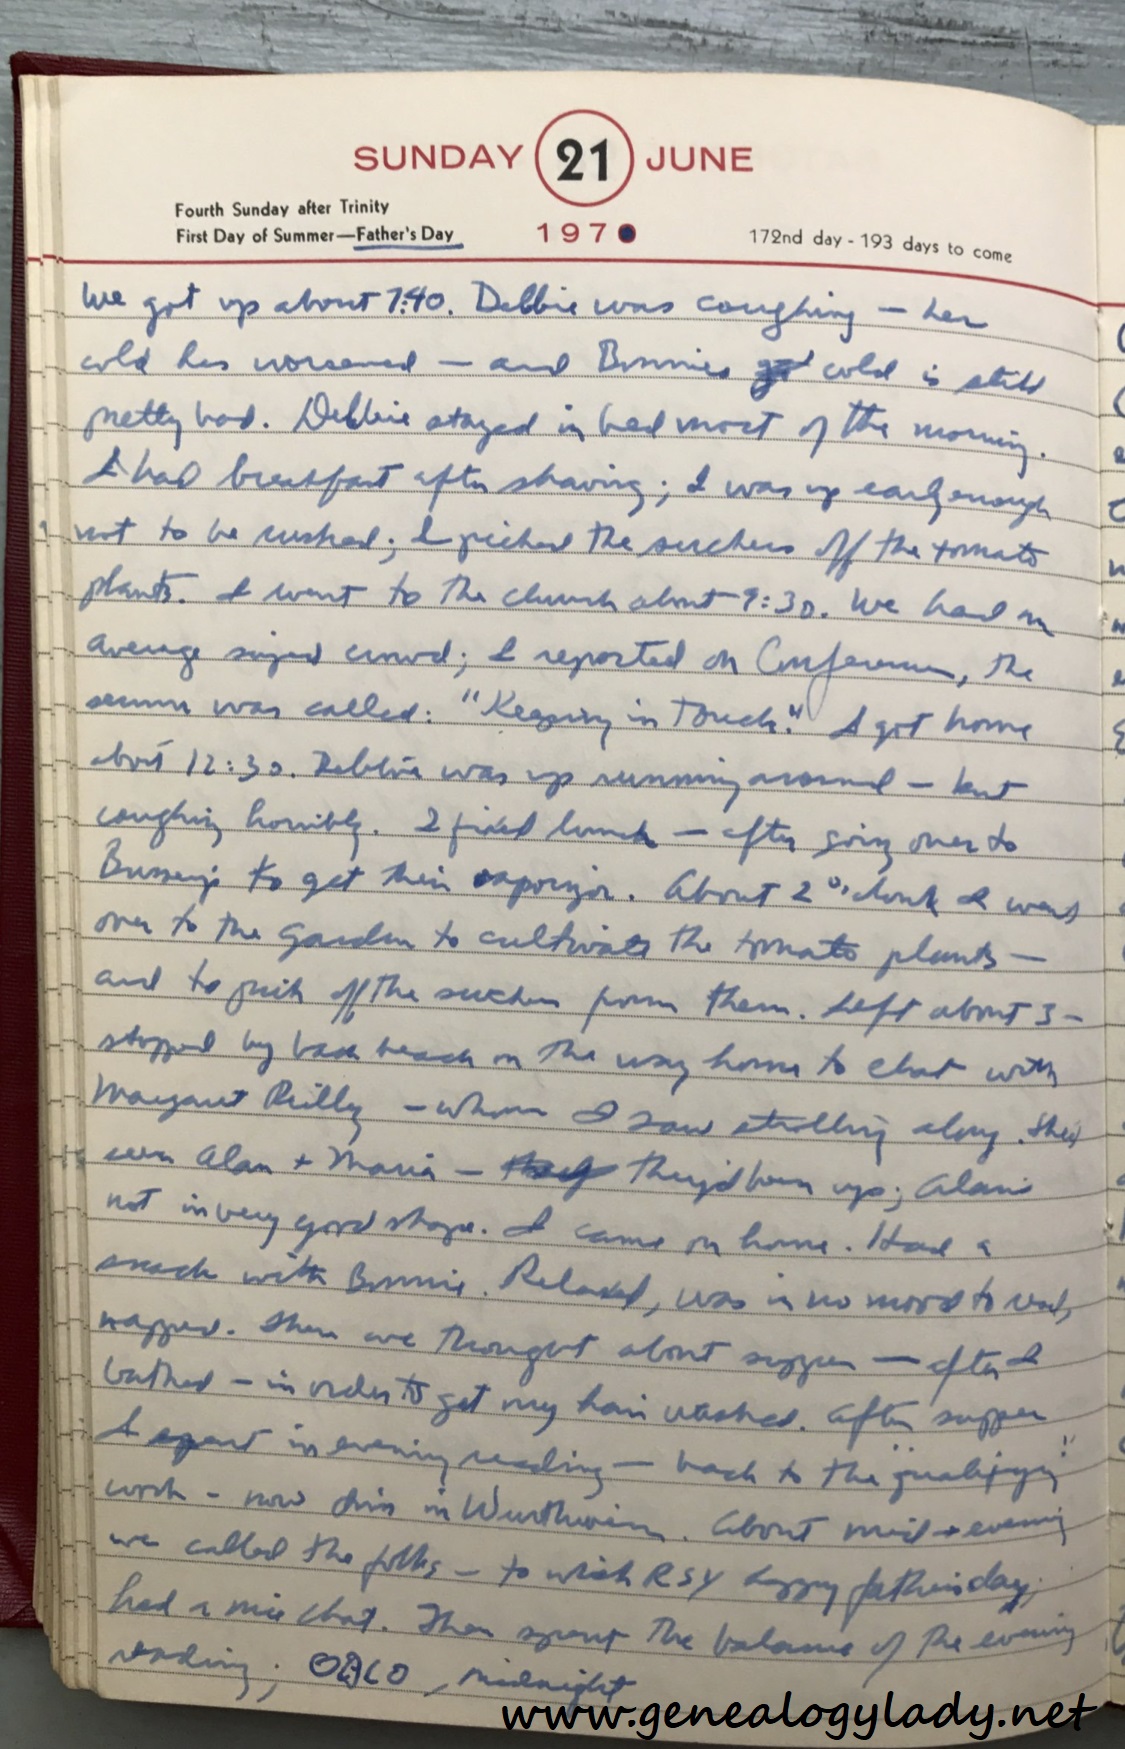 SUNDAY 21 JUNE
Fourth Sunday after Trinity
First Day of Summer—Father's Day
197
172nd day - 193 days to come
We got up about 7:40. Debbie was coughing — her
cold has worsened — and Bonnies cold is still
pretty bad. Debbie stayed in bed most of the morning.
I had breakfast after shaving; I was up early enough
not to be rushed; I picked the suckers off the tomato
plants. I went to the church about 9:30. We had an
average sized crowd; I reported on Conference, the
sermon was called: "Keeping in Touch." I got home
about 12:30. Debbie was up running around — but
coughing horribly. I fixed lunch — after going over to
to get their vaporizor. About 2 o'clock I went
over to the garden to cultivate the tomato plants —
and to pick off the suckers from them. Left about 3 -
stopped by back beach on the way home to chat with
Margaret Reilly - whom I saw strolling along. She'd
seen Alan + Maria - they'd been up; Alan's
not in very good shape. I came on home. Had a
snack with Bonnie. Relaxed, was in no mood to read,
napped. Then we thought about supper — after I
bathed - in order to get my hair washed. After supper
I spent in evening reading — back to the "qualifying"
work - now in. About mid-evening
we called the folks - to wish RSY happy father's day;
had a nice chat. Then spent the balance of the evening
reading; , midnight
www.genealogylady.net